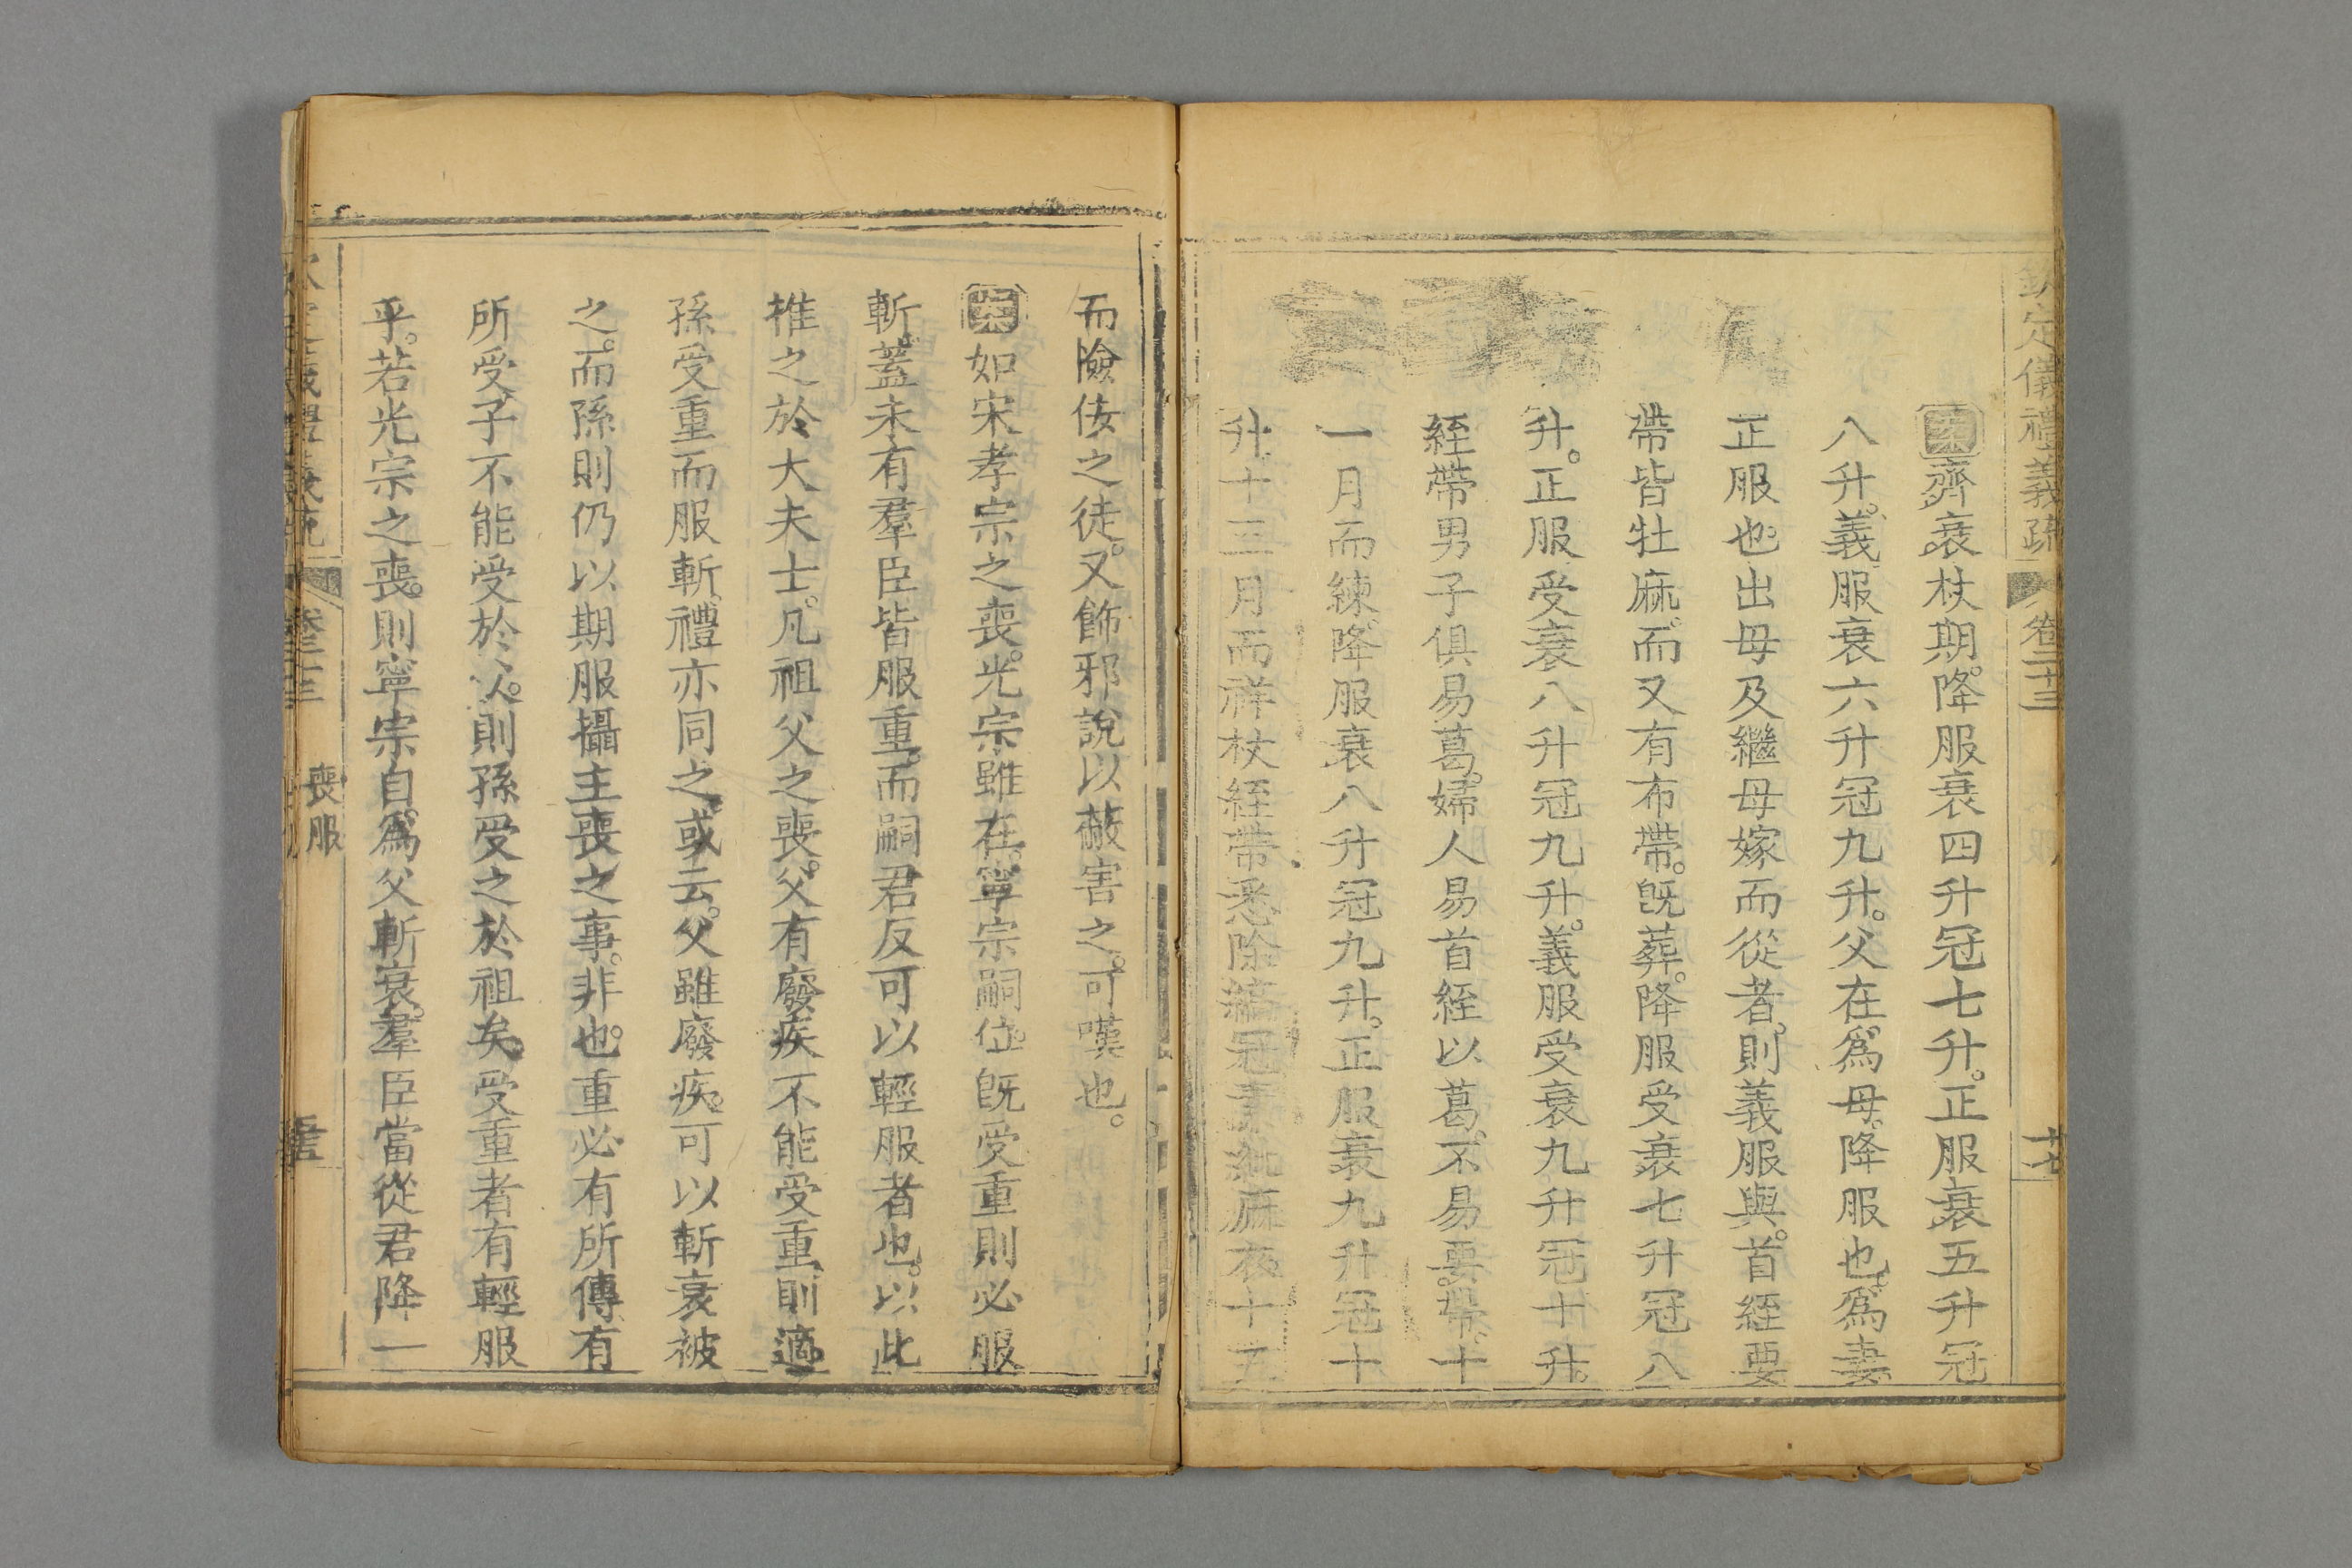 欽定儀禮義疏 卷二十三 十七
案齊衰杖期。降服衰四升冠七升。正服衰五升冠
八升。義服衰六升冠九升。父在爲母。降服也。爲妻
正服也。出母及繼母嫁而從者。則義服與。首絰要
帶皆牡麻。而又有布帶。旣葬。降服受衰七升冠八
升。正服受衰八升冠九升。義服受衰九升冠十升。
絰帶男子俱易葛。婦人易首絰以葛。不易要帶。十
一月而練。降服衰八升冠九升。正服衰九升冠十
升。十三月而祥杖絰帶悉除縞冠素紕麻衣十五
而險佞之徒。又飾邪說以蔽害之。可嘆也。
案如宋孝宗之喪。光宗雖在。寧宗嗣位。旣受重則必服
斬。蓋未有羣臣皆服重。而嗣君反可以輕服者也。以此
推之於大夫士。凡祖父之喪。父有廢疾不能受重。則適
孫受重而服斬。禮亦同之。或云。父雖廢疾。可以斬衰被
之。而孫則仍以期服攝主喪之事。非也。重必有所傳有
所受。子不能受於父。則孫受之於祖矣。受重者有輕服
乎。若光宗之喪。則寧宗自爲父斬衰。羣臣當從君降一
喪服